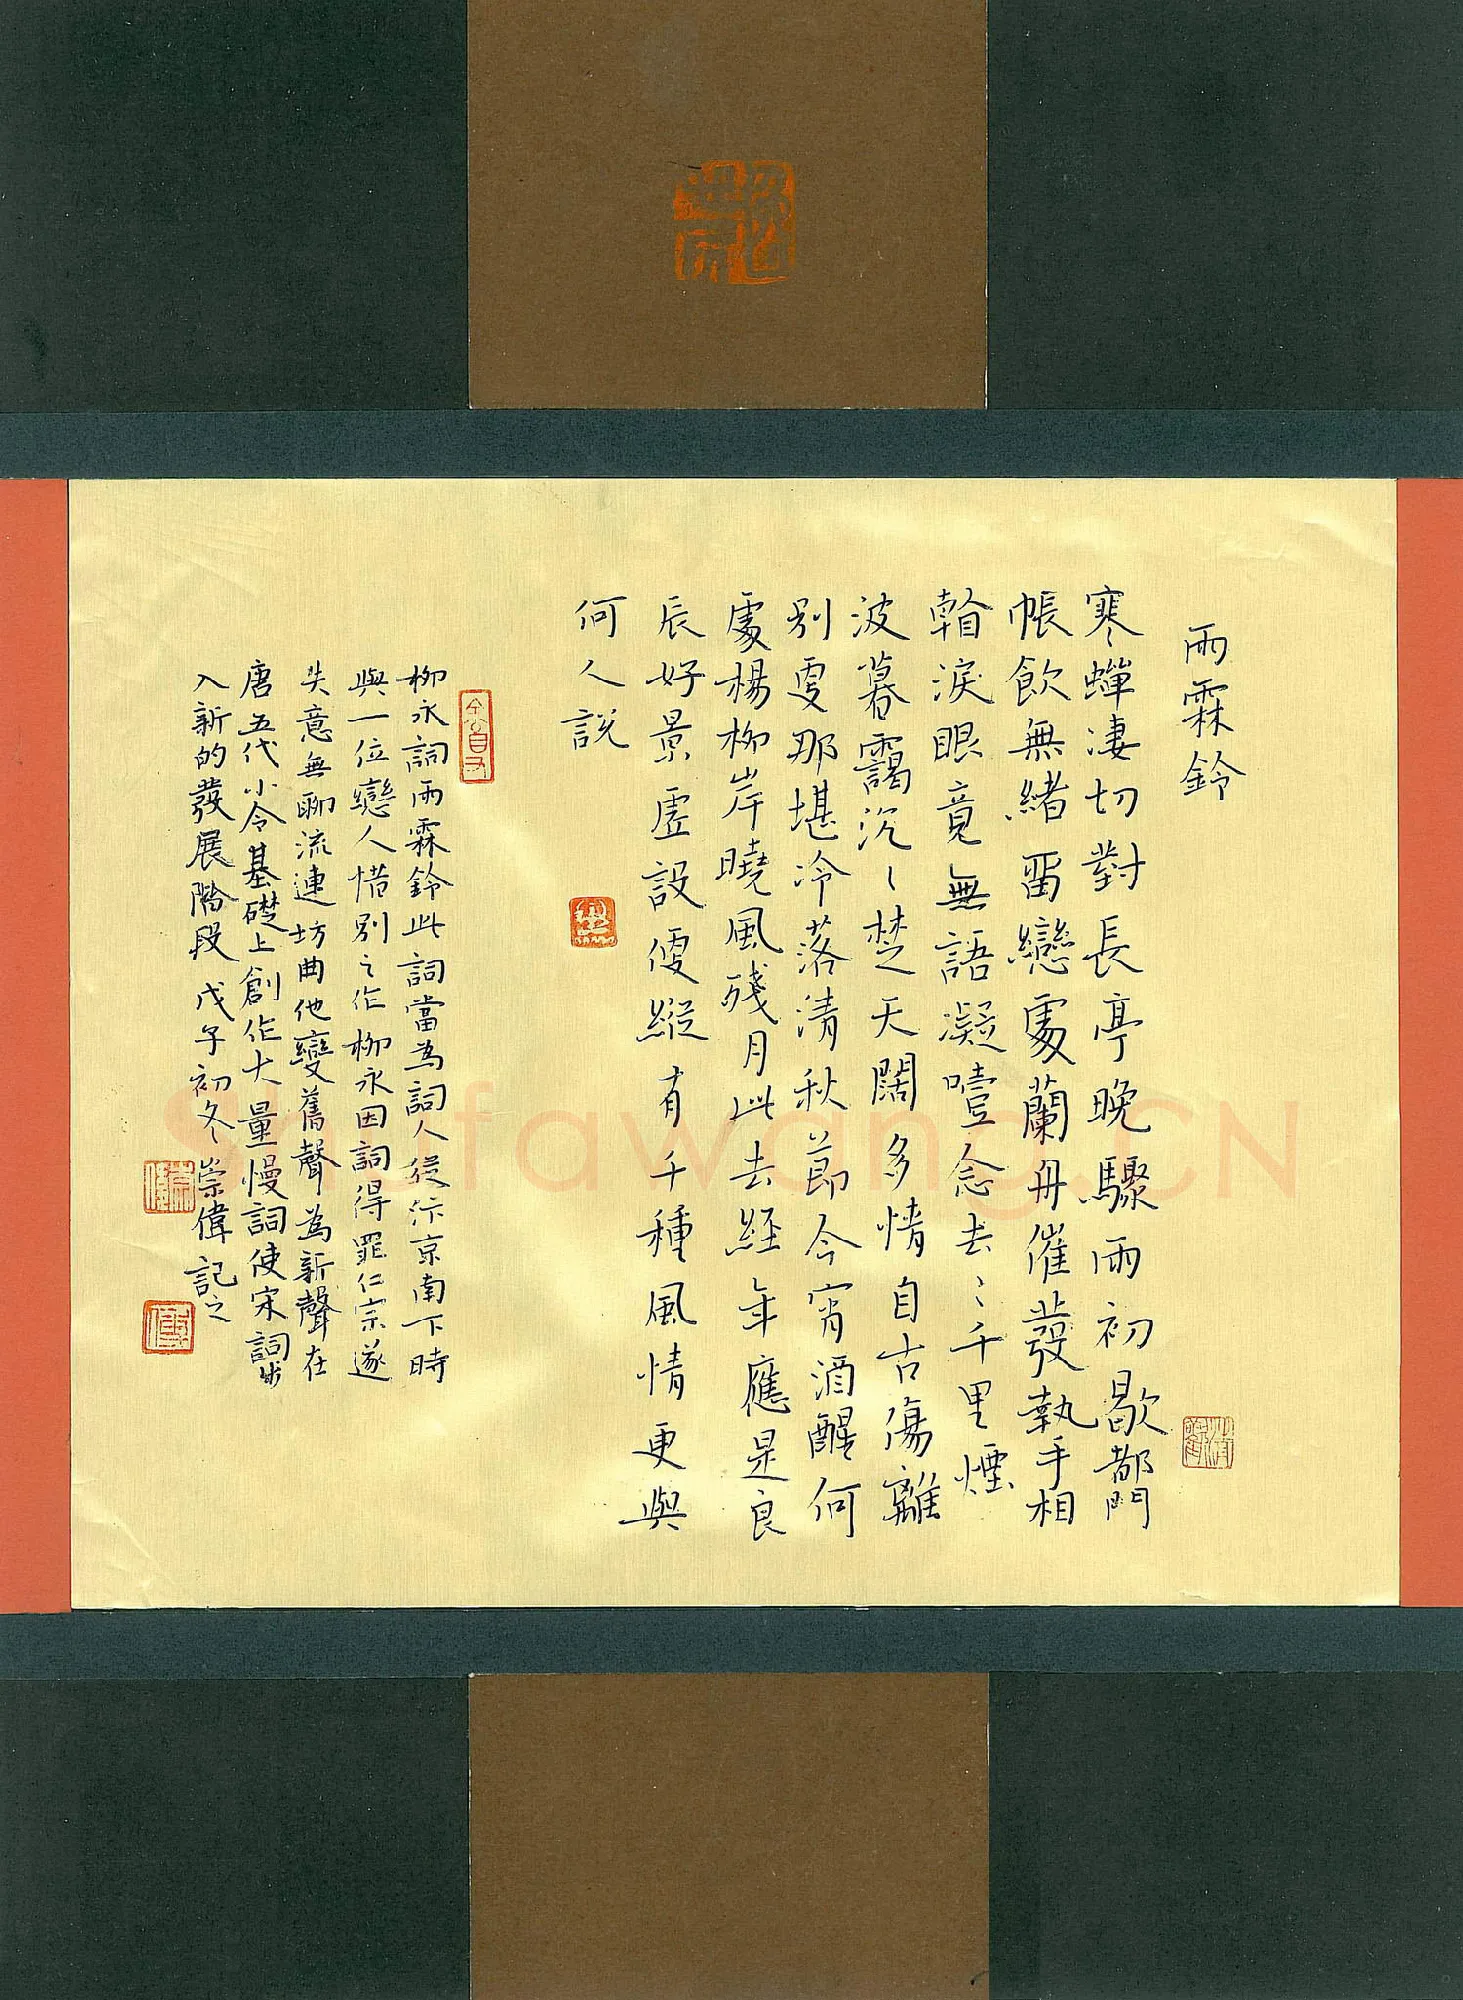 雨霖鈴
寒蟬淒切對長亭晚驟雨初歇都門
帳飲無緒留戀處蘭舟催發執手相
看淚眼竟無語凝噎念去〻千里煙
波暮靄沉〻楚天闊多情自古傷離
別更那堪冷落清秋節今宵酒醒何
處楊柳岸曉風殘月此去經年應是良
辰好景虛設便縱有千種風情更與
何人說
柳永詞雨霖鈴此詞當為詞人從汴京南下時
與一位戀人惜別之作柳永因詞得罪仁宗遂
失意無聊流連坊曲他變舊聲為新聲在
唐五代小令基礎上創作大量慢詞使宋詞步
入新的發展階段戊子初冬崇偉記之
Shufawang.CN